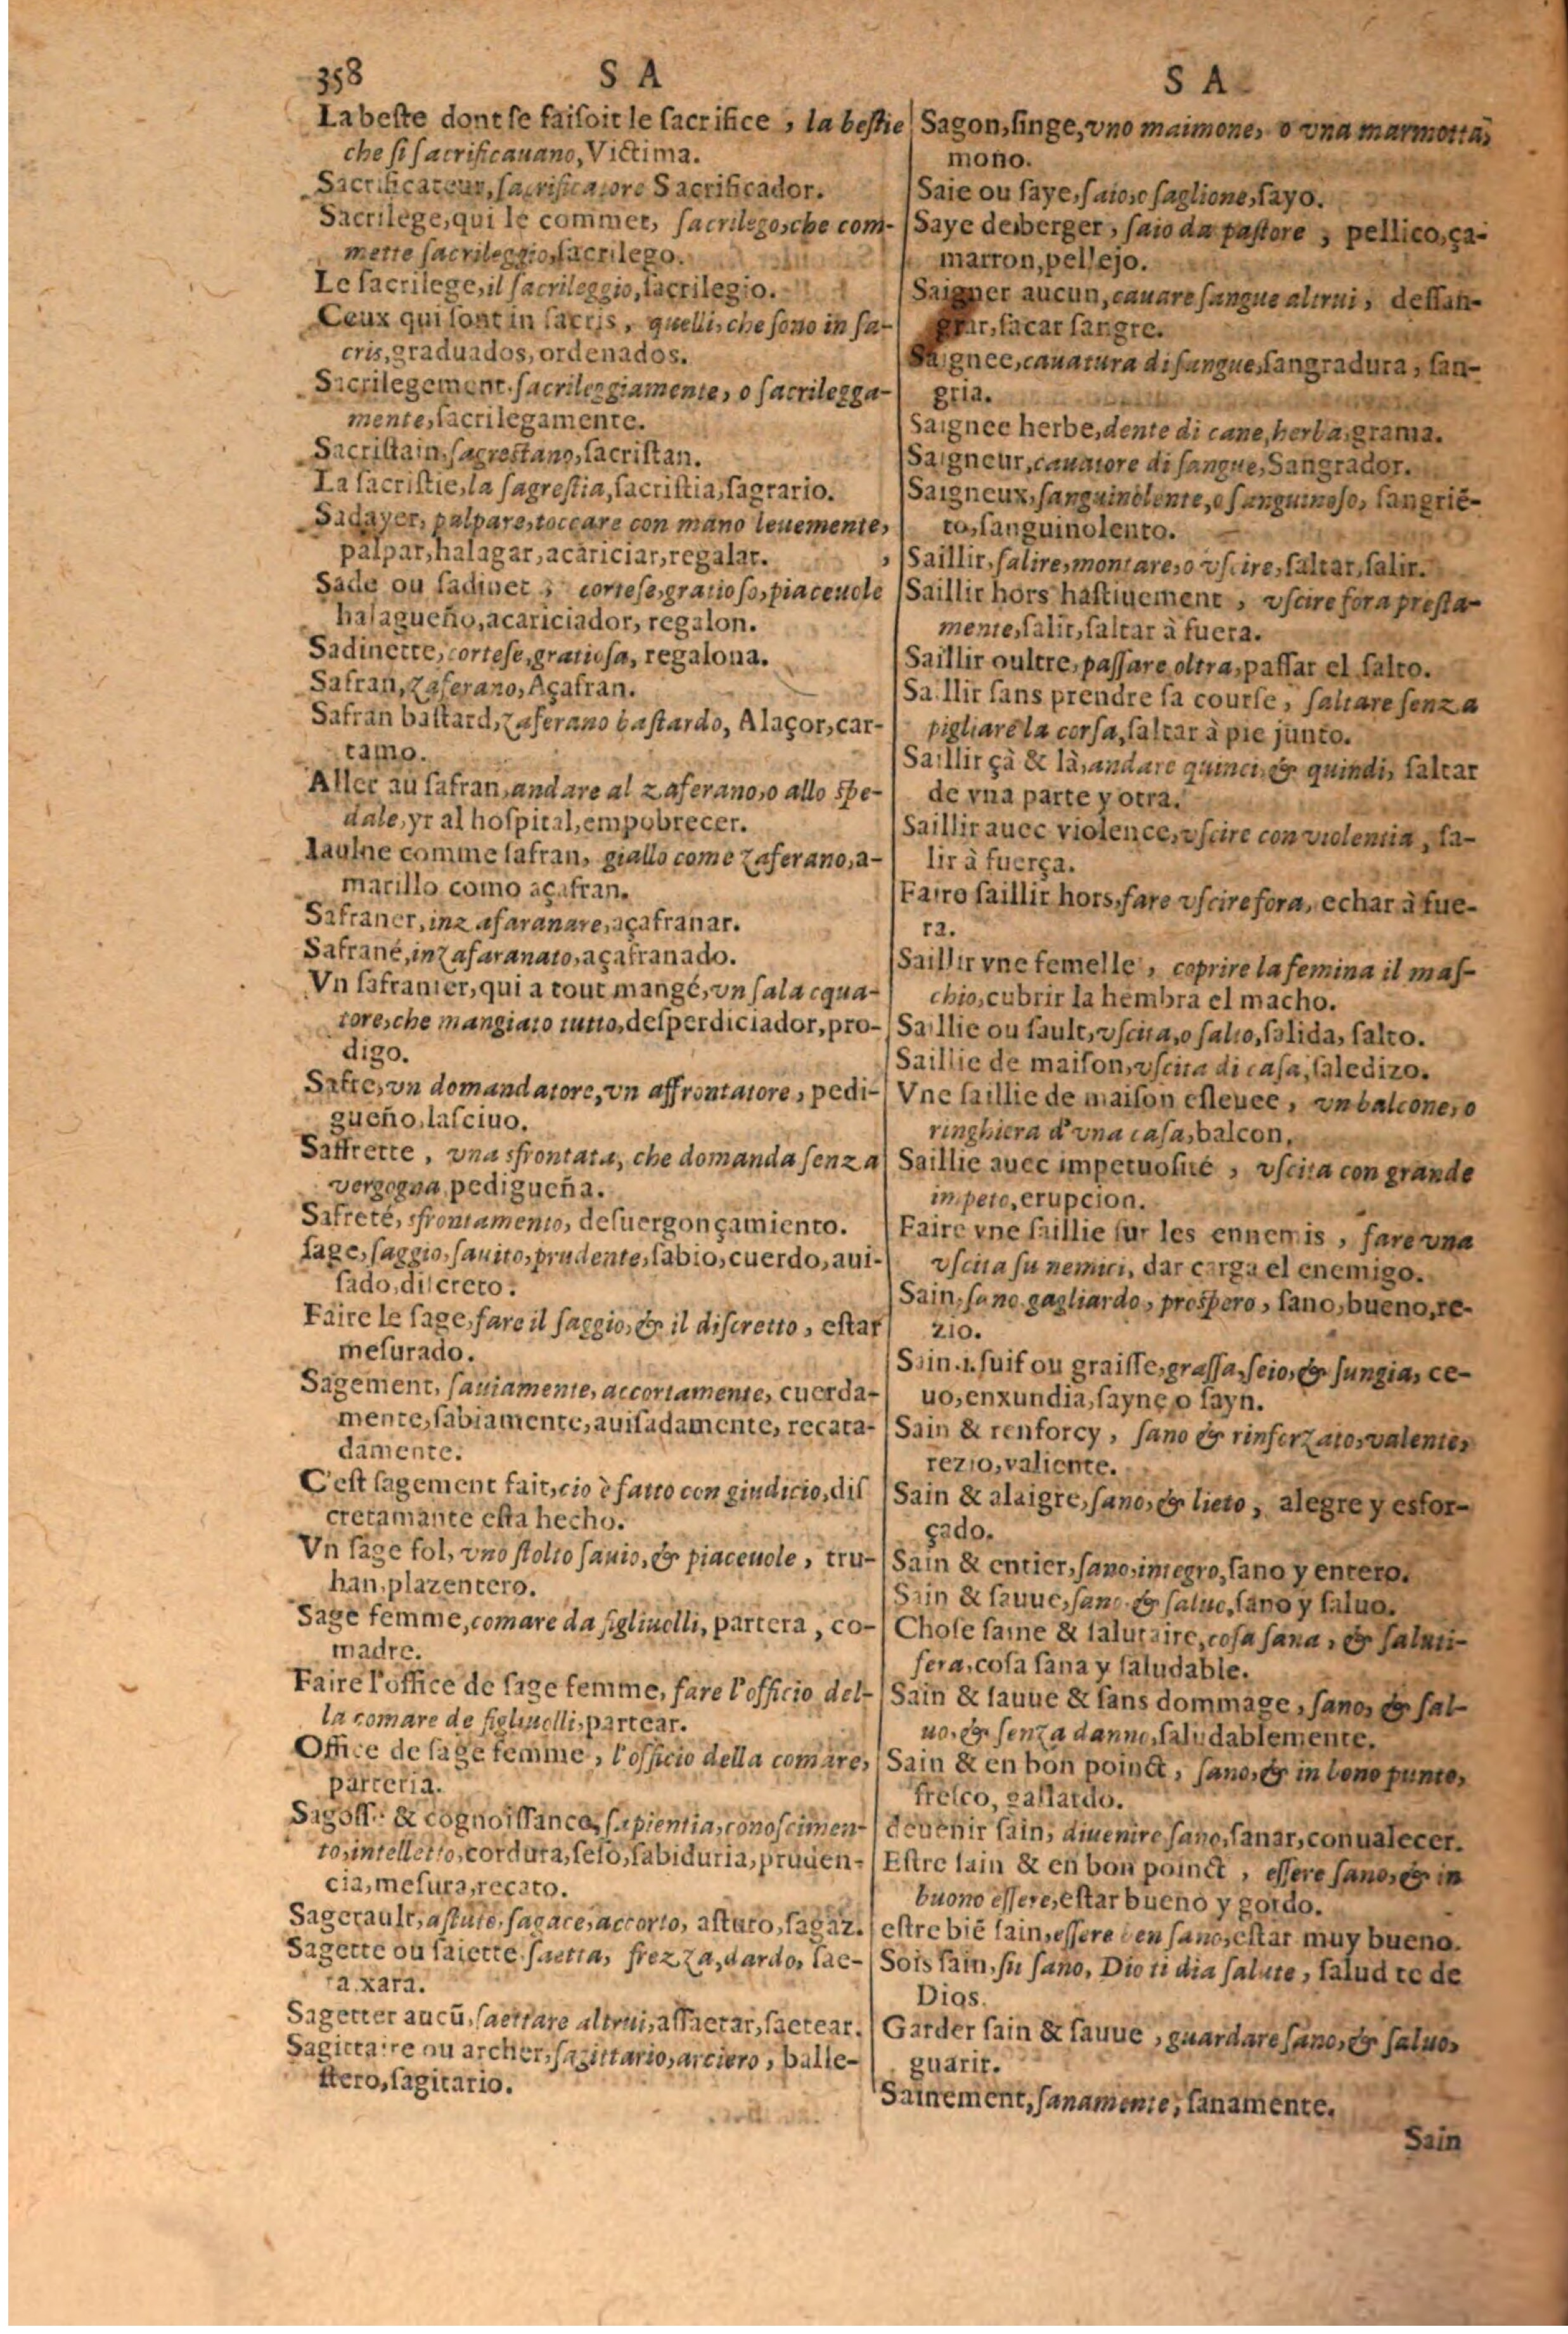 358 S A
La beste dont se faisoit le sacrifice, la bestie
che si sacrificauano, Victima.
Sacrificateur, sacrificatore Sacrificador.
Sacrilege, qui le commet, sacrilego, che com-
mette sacrileggio, sacrilego.
Le sacrilege, il sacrileggio, sacrilegio.
Ceux qui sont in sacris, quelli, che sono in sa-
cris, graduados, ordenados.
Sacrilegement, sacrileggiamente, o sacrilegga-
mente, sacrilegamente.
Sacristain, sagrestano, sacristan.
La sacristie, la sagrestia, sacristia, sagrario.
Sadayer, palpare, toccare con mano leuemente,
palpar, halagar, acariciar, regalar.
Sade ou sadinet, cortese, gratioso, piaceuole
halagueño, acariciador, regalon.
Sadinette, cortese, gratiosa, regalona.
Safran, zaferano, Açafran.
Safran bastard, zaferano bastardo, Alaçor, car-
tamo.
Aller au safran, andare al zaferano, o allo spe-
dale, yr al hospital, empobrecer.
Iaulne comme safran, giallo come zaferano, a-
marillo como açafran.
Safraner, inzafaranare, açafranar.
Safrané, inzafaranato, açafranado.
Vn safranier, qui a tout mangé, vn salacqua-
tore, che mangiato tutto, desperdiciador, pro-
digo.
Safre, vn domandatore, vn affrontatore, pedi-
gueño, lasciuo.
Saffrette, vna sfrontata, che domanda senza
vergogna pedigueña.
Safreté, sfrontamento, desuergonçamiento.
sage, saggio, sauito, prudente, sabio, cuerdo, aui-
sado, discreto.
Faire le sage, fare il saggio, & il discretto, estar
mesurado.
Sagement, sauiamente, accortamente, cuerda-
mente, sabiamente, auisadamente, recata-
damente.
C'est sagement fait, cio è fatto con giudicio, dis
cretamante esta hecho.
Vn sage fol, vno stolto sauio, & piaceuole, tru-
han, plazentero.
Sage femme, comare da figliuelli, partera, co-
madre.
Faire l'office de sage femme, fare l'officio del-
la comare de figliuelli, partear.
Office de sage femme, l'officio della comare,
parteria.
& cognoissance, sapientia, conoscimen-
to, intelletto, cordura, seso, sabiduria, pruden-
cia, mesura, recato.
Sagerault, astuto, sagace, accorto, astuto, sagaz.
Sagette ou saiette saetta, frezza, dardo, sae-
ta xara.
Sagetter aucū, saettare altrui, assaetar, saetear.
Sagittaire ou archer, sagittario, arciero, balle-
stero, sagitario.
S A
Sagon, singe, vno maimone, o vna marmotta,
mono.
Saie ou saye, saio, o saglione, sayo.
Saye de berger, saio da pastore, pellico, ça-
marron, pellejo.
Saigner aucun, cauare sangue altrui, dessan-
grar, sacar sangre.
Saignee, cauatura di sangue, sangradura, san-
gria.
Saignee herbe, dente di cane, herba, grama.
Saigneur, cauatore di sangue, Sangrador.
Saigneux, sanguinolente, o sanguinoso, sangriē-
to, sanguinolento.
Saillir, salire, montare, o vscire, saltar, salir.
Saillir hors hastiuement, vscire fora presta-
mente, salir, saltar à fuera.
Saillir oultre, passare oltra, passar el salto.
Saillir sans prendre sa course, saltare senza
pigliare la corsa, saltar à pie junto.
Saillir çà & là, andare quinci, & quindi, saltar
de vna parte y otra.
Saillir auec violence, vscire con violentia, sa-
lir à fuerça.
Faire saillir hors, fare vscire fora, echar à fue-
ra.
Saillir vne femelle, coprire la femina il mas-
chio, cubrir la hembra el macho.
Saillie ou sault, vscita, o salto, salida, salto.
Saillie de maison, vscita di casa, saledizo.
Vne saillie de maison esleuee, vn balcone, o
ringhiera d'vna casa, balcon,
Saillie auec impetuosité, vscita con grande
impeto, erupcion.
Faire vne saillie sur les ennemis, fare vna
vscita su nemici, dar carga el enemigo.
Sain, sano gagliardo, prospero, sano, bueno, re-
zio.
Sain .i. suif ou graisse, grassa, seio, & sungia, ce-
uo, enxundia, sayne, o sayn.
Sain & renforcy, sano & rinferzato, valente,
rezio, valiente.
Sain & alaigre, sano, & lieto, alegre y esfor-
çado.
Sain & entier, sano, integro, sano y entero.
Sain & sauue, sano & saluo, sano y saluo.
Chose saine & salutaire, cosa sana, & saluti-
fera, cosa sana y saludable.
Sain & sauue & sans dommage, sano, & sal-
uo, & senza danno, saludablemente.
Sain & en bon poinct, sano, & in bono punto,
fresco, gallardo.
deuenir sain, diuenire sano, sanar, conualecer.
Estre sain & en bon poinct, essere sano, & in
buono essere, estar bueno y gordo.
estre biē sain, essere ben sano, estar muy bueno.
Sois sain, sii sano, Dio ti dia salute, salud te de
Dios.
Garder sain & sauue, guardare sano, & saluo,
guarir.
Sainement, sanamente, sanamente.
Sain